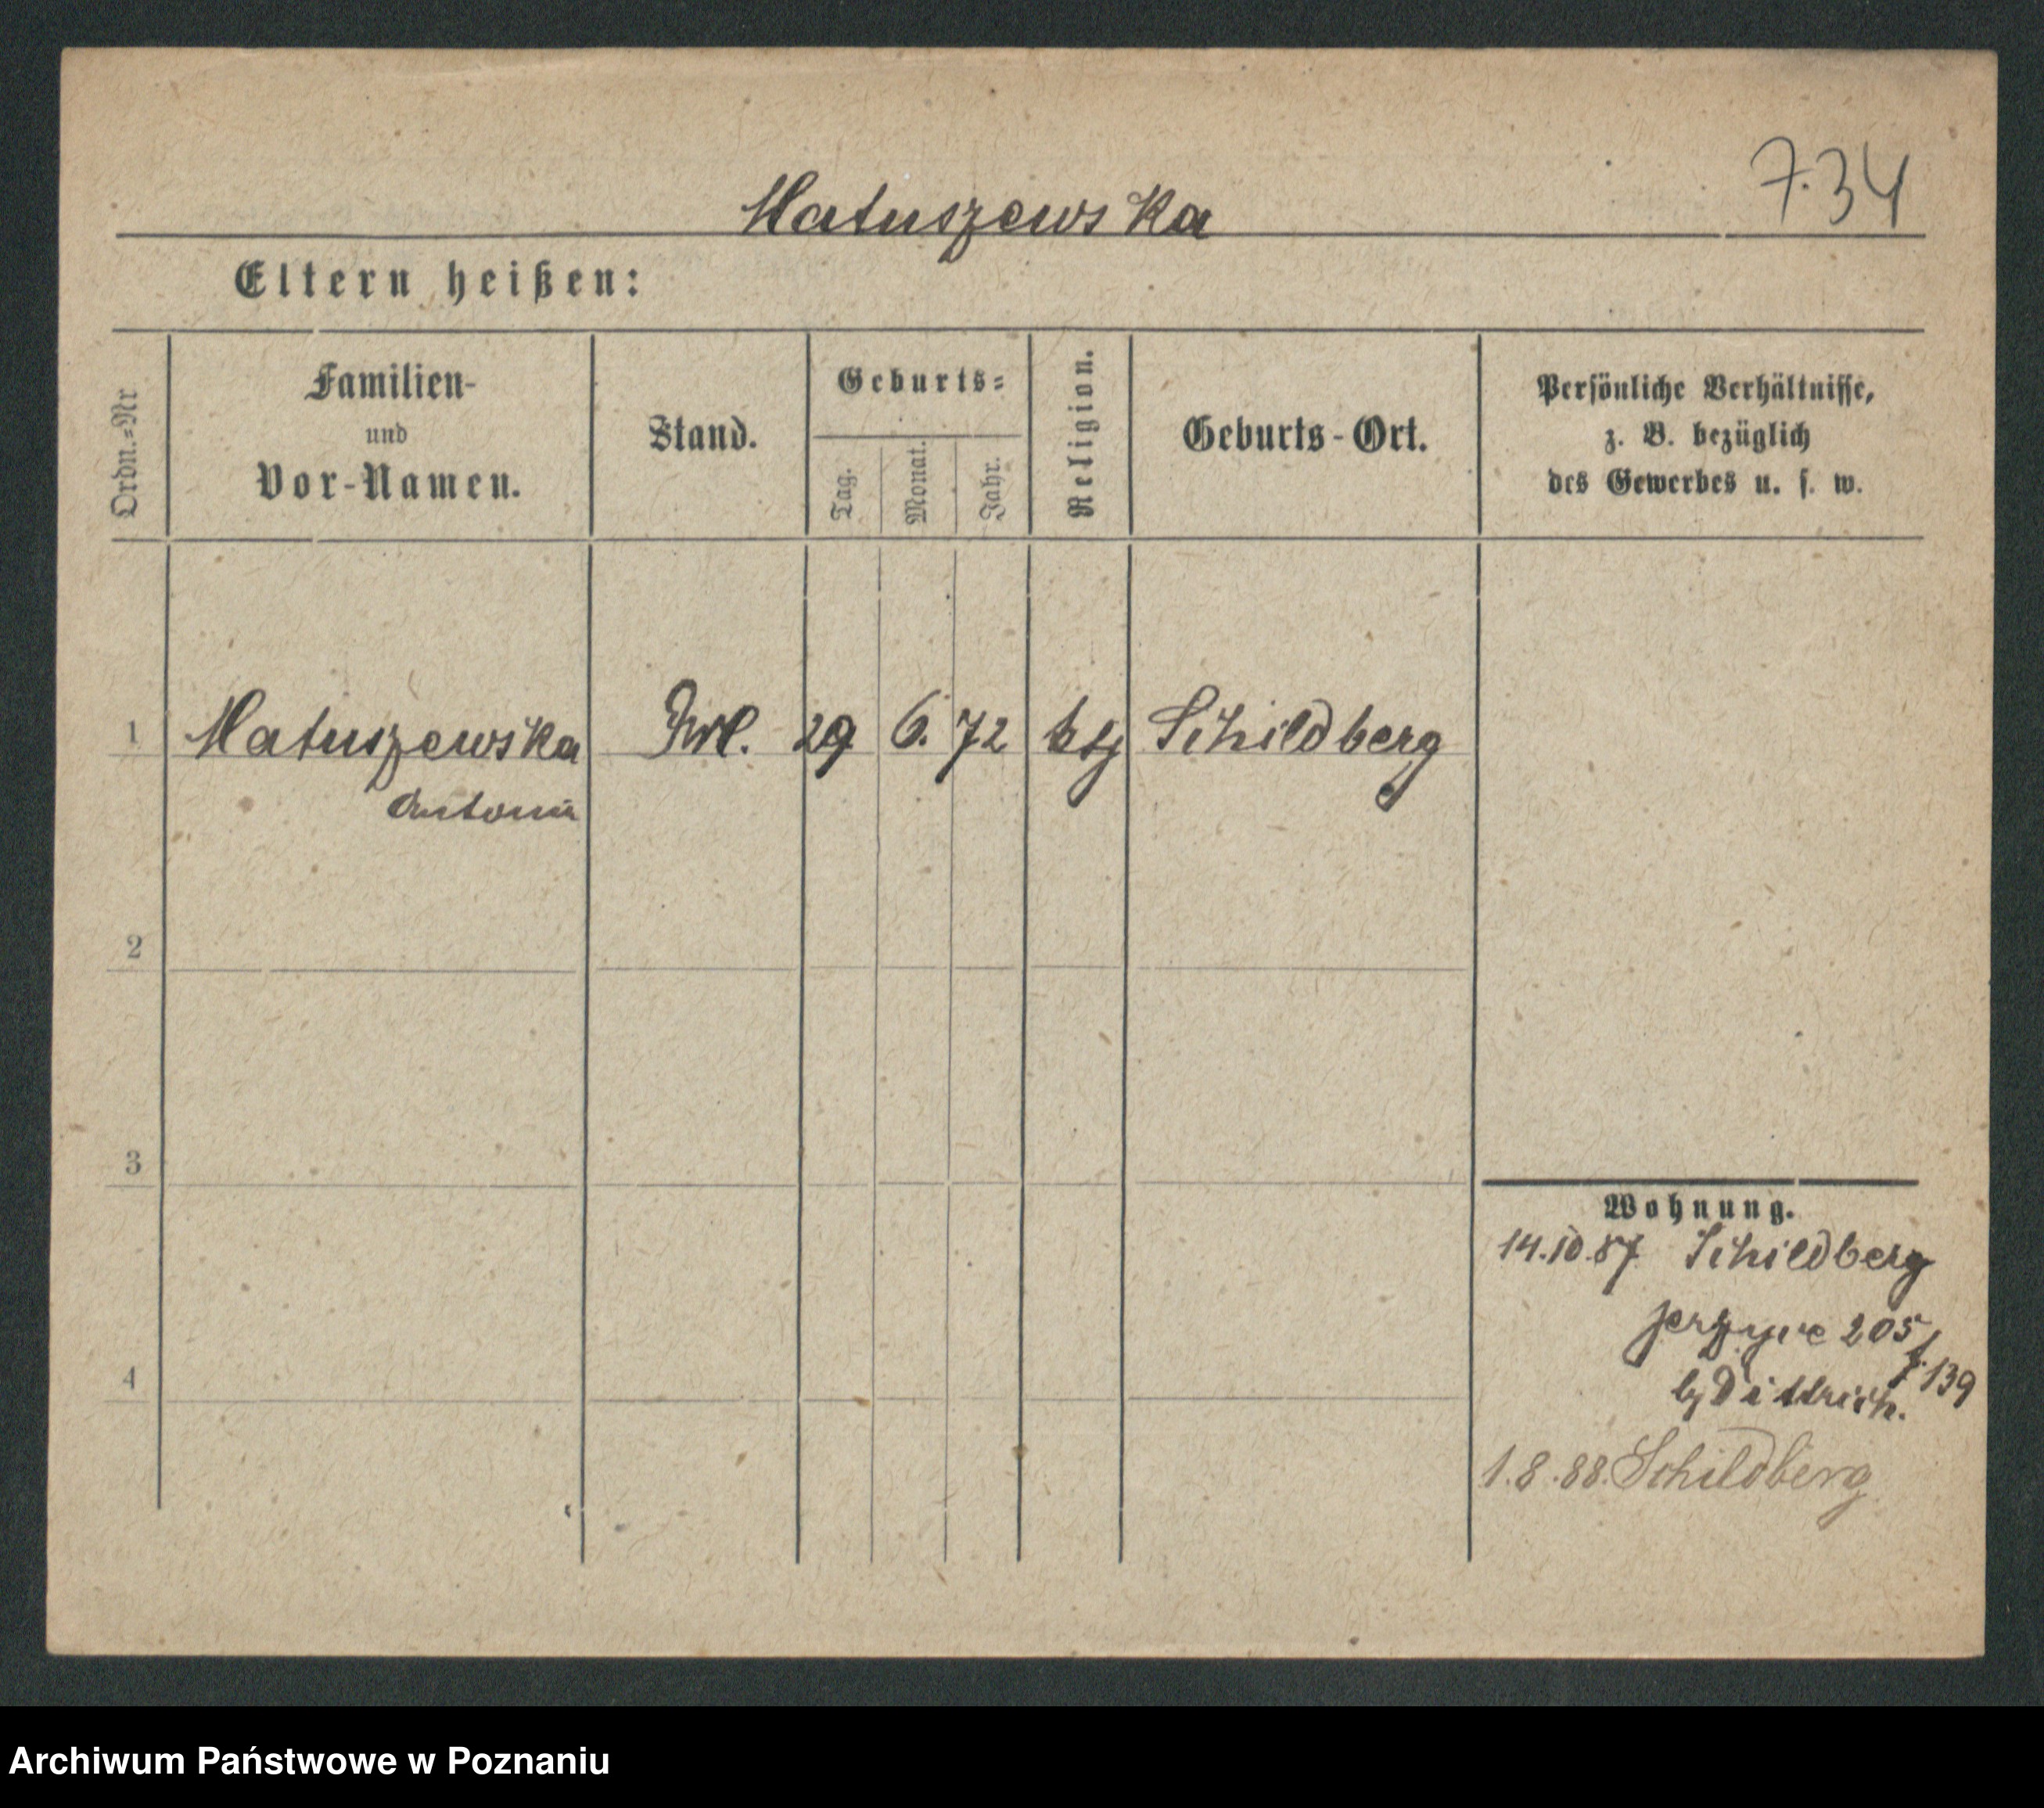 7.34
Matuszewska
Eltern heißen:
Ordn.-Nr
Familien-
und
Vor-Namen.
Stand.
Geburts-
Tag.
Monat.
Jahr.
Religion.
Geburts-Ort.
Persönliche Verhältnisse,
z. B. bezüglich
des Gewerbes u. s. w.
1 Matuszewska 29 6. 72 Schildberg
Antonie
2
3
4
Wohnung.
14.10.87 Schildberg
205
139
Dittrich.
1.8.88. Schildberg
Archiwum Państwowe w Poznaniu